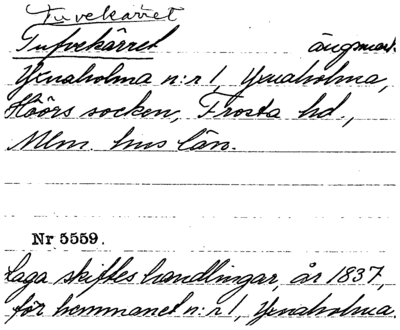 Tuvekärret
Tufvekärret ängsmark
Ynaholma n:r 1, Ynaholma,
Höörs socken, Frosta hd.,
Mlm. hus län.
Nr 5559.
Laga skifteshandlingar, år 1837,
för hemmanet n:r 1, Ynaholma.